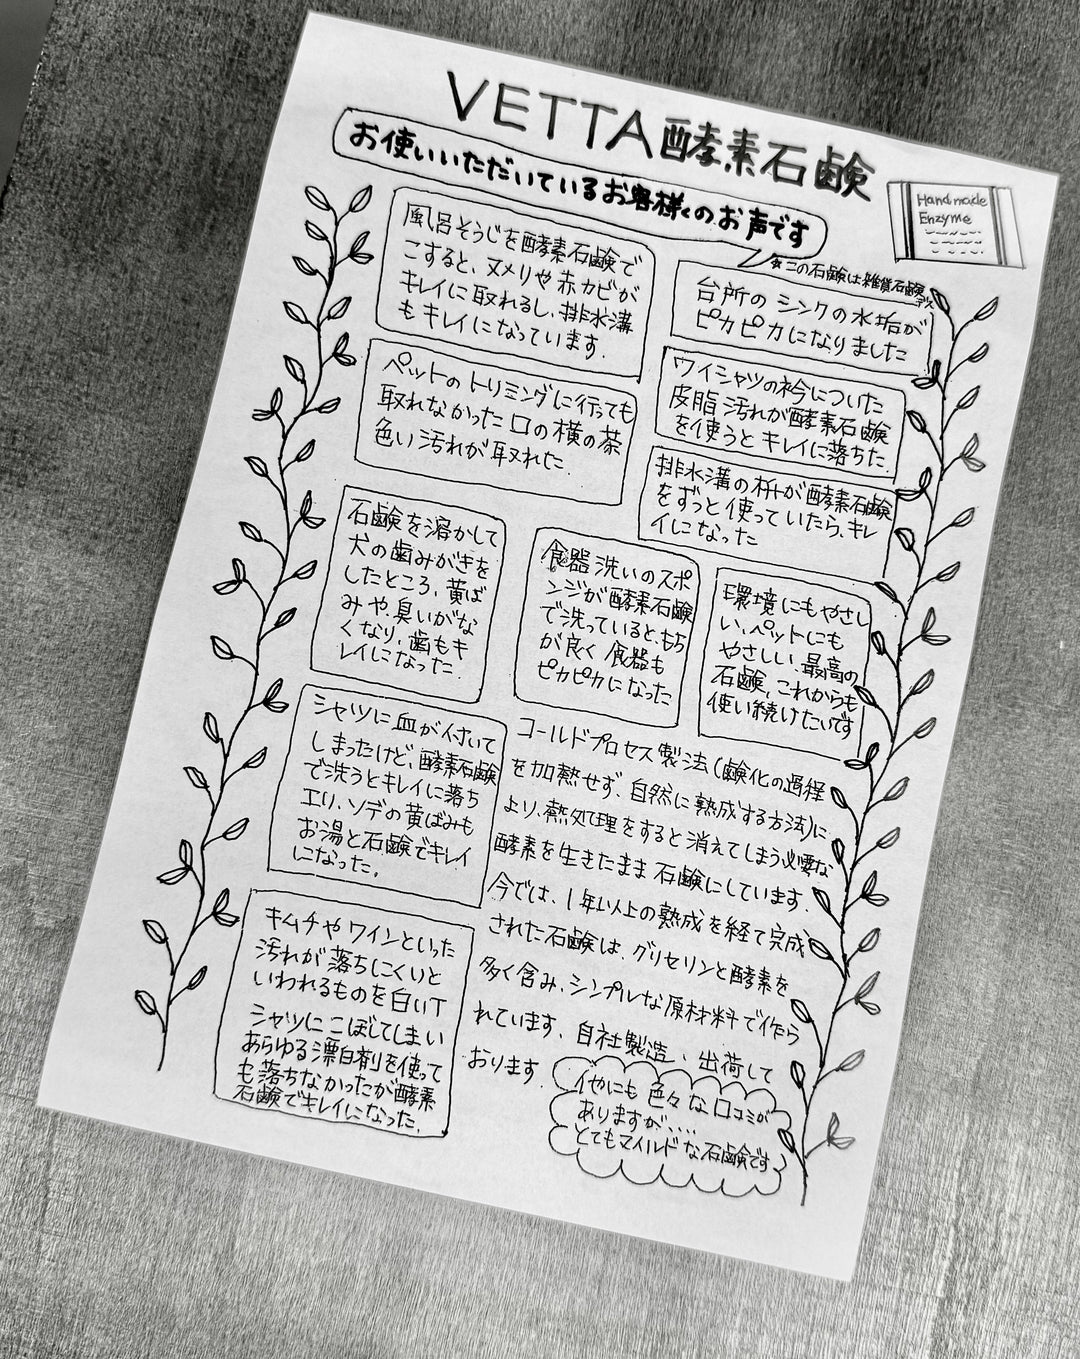 VETTA酵素石鹸
お使いいただいているお客様のお声です
Handmade
Enzyme
※この石鹸は雑貨石鹸です
風呂そうじを酵素石鹸で
こすると、ヌメリや赤カビが
キレイに取れるし、排水溝
もキレイになっています.
台所のシンクの水垢が
ピカピカになりました
ペットのトリミングに行っても
取れなかった口の横の茶
色い汚れが取れた.
ワイシャツの衿についた
皮脂汚れが酵素石鹸
を使うとキレイに落ちた.
排水溝の
が酵素石鹸
をずっと使っていたら、キレ
イになった
石鹸を溶かして
犬の歯みがきを
したところ、黄ば
みや、臭いがな
くなり、歯もキ
レイになった.
食器洗いのスポ
ンジが酵素石鹸
で洗っていると、もち
が良く食器も
ピカピカになった
環境にもやさし
い、ペットにも
やさしい、最高の
石鹸、これからも
使い続けたいです
シャツに血が付いて
しまったけど、酵素石鹸
で洗うとキレイに落ち
エリ、ソデの黄ばみも
お湯と石鹸でキレイ
になった.
キムチやワインといった
汚れが落ちにくいと
いわれるものを白いT
シャツにこぼしてしまい
あらゆる漂白剤を使って
も落ちなかったが酵素
石鹸でキレイになった.
コールドプロセス製法(鹸化の過程
を加熱せず、自然に熟成する方法)に
より、熱処理をすると消えてしまう必要な
酵素を生きたまま石鹸にしています.
今では、1年以上の熟成を経て完成
された石鹸は、グリセリンと酵素を
多く含み、シンプルな原材料で作ら
れています、自社製造、出荷して
おります.
他にも色々な口コミが
ありますが、...
とてもマイルドな石鹸です